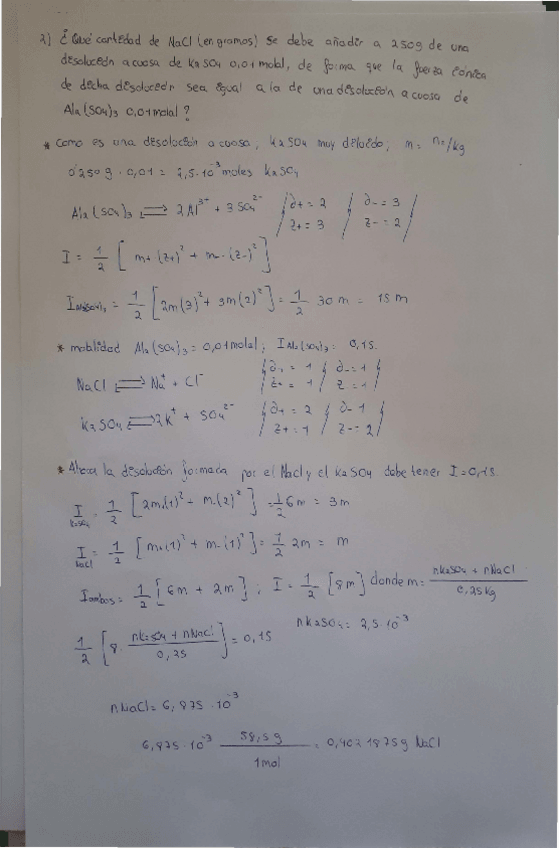 2) ¿Qué cantidad de NaCl (en gramos) se debe añadir a 250g de una
disolución acuosa de K2SO4 0,01 molal, de forma que la fuerza iónica
de dicha disolución sea igual a la de una disolución acuosa de
Al2(SO4)3 0,01 molal?
* Como es una disolución acuosa, K2SO4 muy diluido, m = n2/kg
0'250 g · 0,01 = 2,5·10^-3 moles K2SO4
Al2(SO4)3 ⇄ 2Al^3+ + 3SO4^2- / ∂+ = 2 z+ = 3 / ∂- = 3 z- = 2 /
I = 1/2 [m+(z+)^2 + m-(z-)^2]
I Al2(SO4)3 = 1/2 [2m(3)^2 + 3m(2)^2] = 1/2 30m = 15m
* molalidad Al2(SO4)3 = 0,01 molal; I Al2(SO4)3 = 0,15.
NaCl ⇄ Na^+ + Cl^- / ∂+ = 1 z+ = 1 / ∂- = 1 z = 1 /
K2SO4 ⇄ 2K^+ + SO4^2- / ∂+ = 2 z+ = 1 / ∂- 1 z- = 2 /
* Ahora la disolución formada por el NaCl y el K2SO4 debe tener I = 0,15.
I K2SO4 = 1/2 [2m(1)^2 + m-(2)^2] = 1/2 6m = 3m
I NaCl = 1/2 [m+(1)^2 + m-(1)^2] = 1/2 2m = m
I ambos = 1/2 [6m + 2m]; I = 1/2 [8m] donde m = nK2SO4 + nNaCl / 0,25kg
1/2 [8 · nK2SO4 + nNaCl / 0,25] = 0,15 nK2SO4 = 2,5·10^-3
nNaCl = 6,875·10^-3
6,875·10^-3 58,5g / 1mol = 0,4021875g NaCl